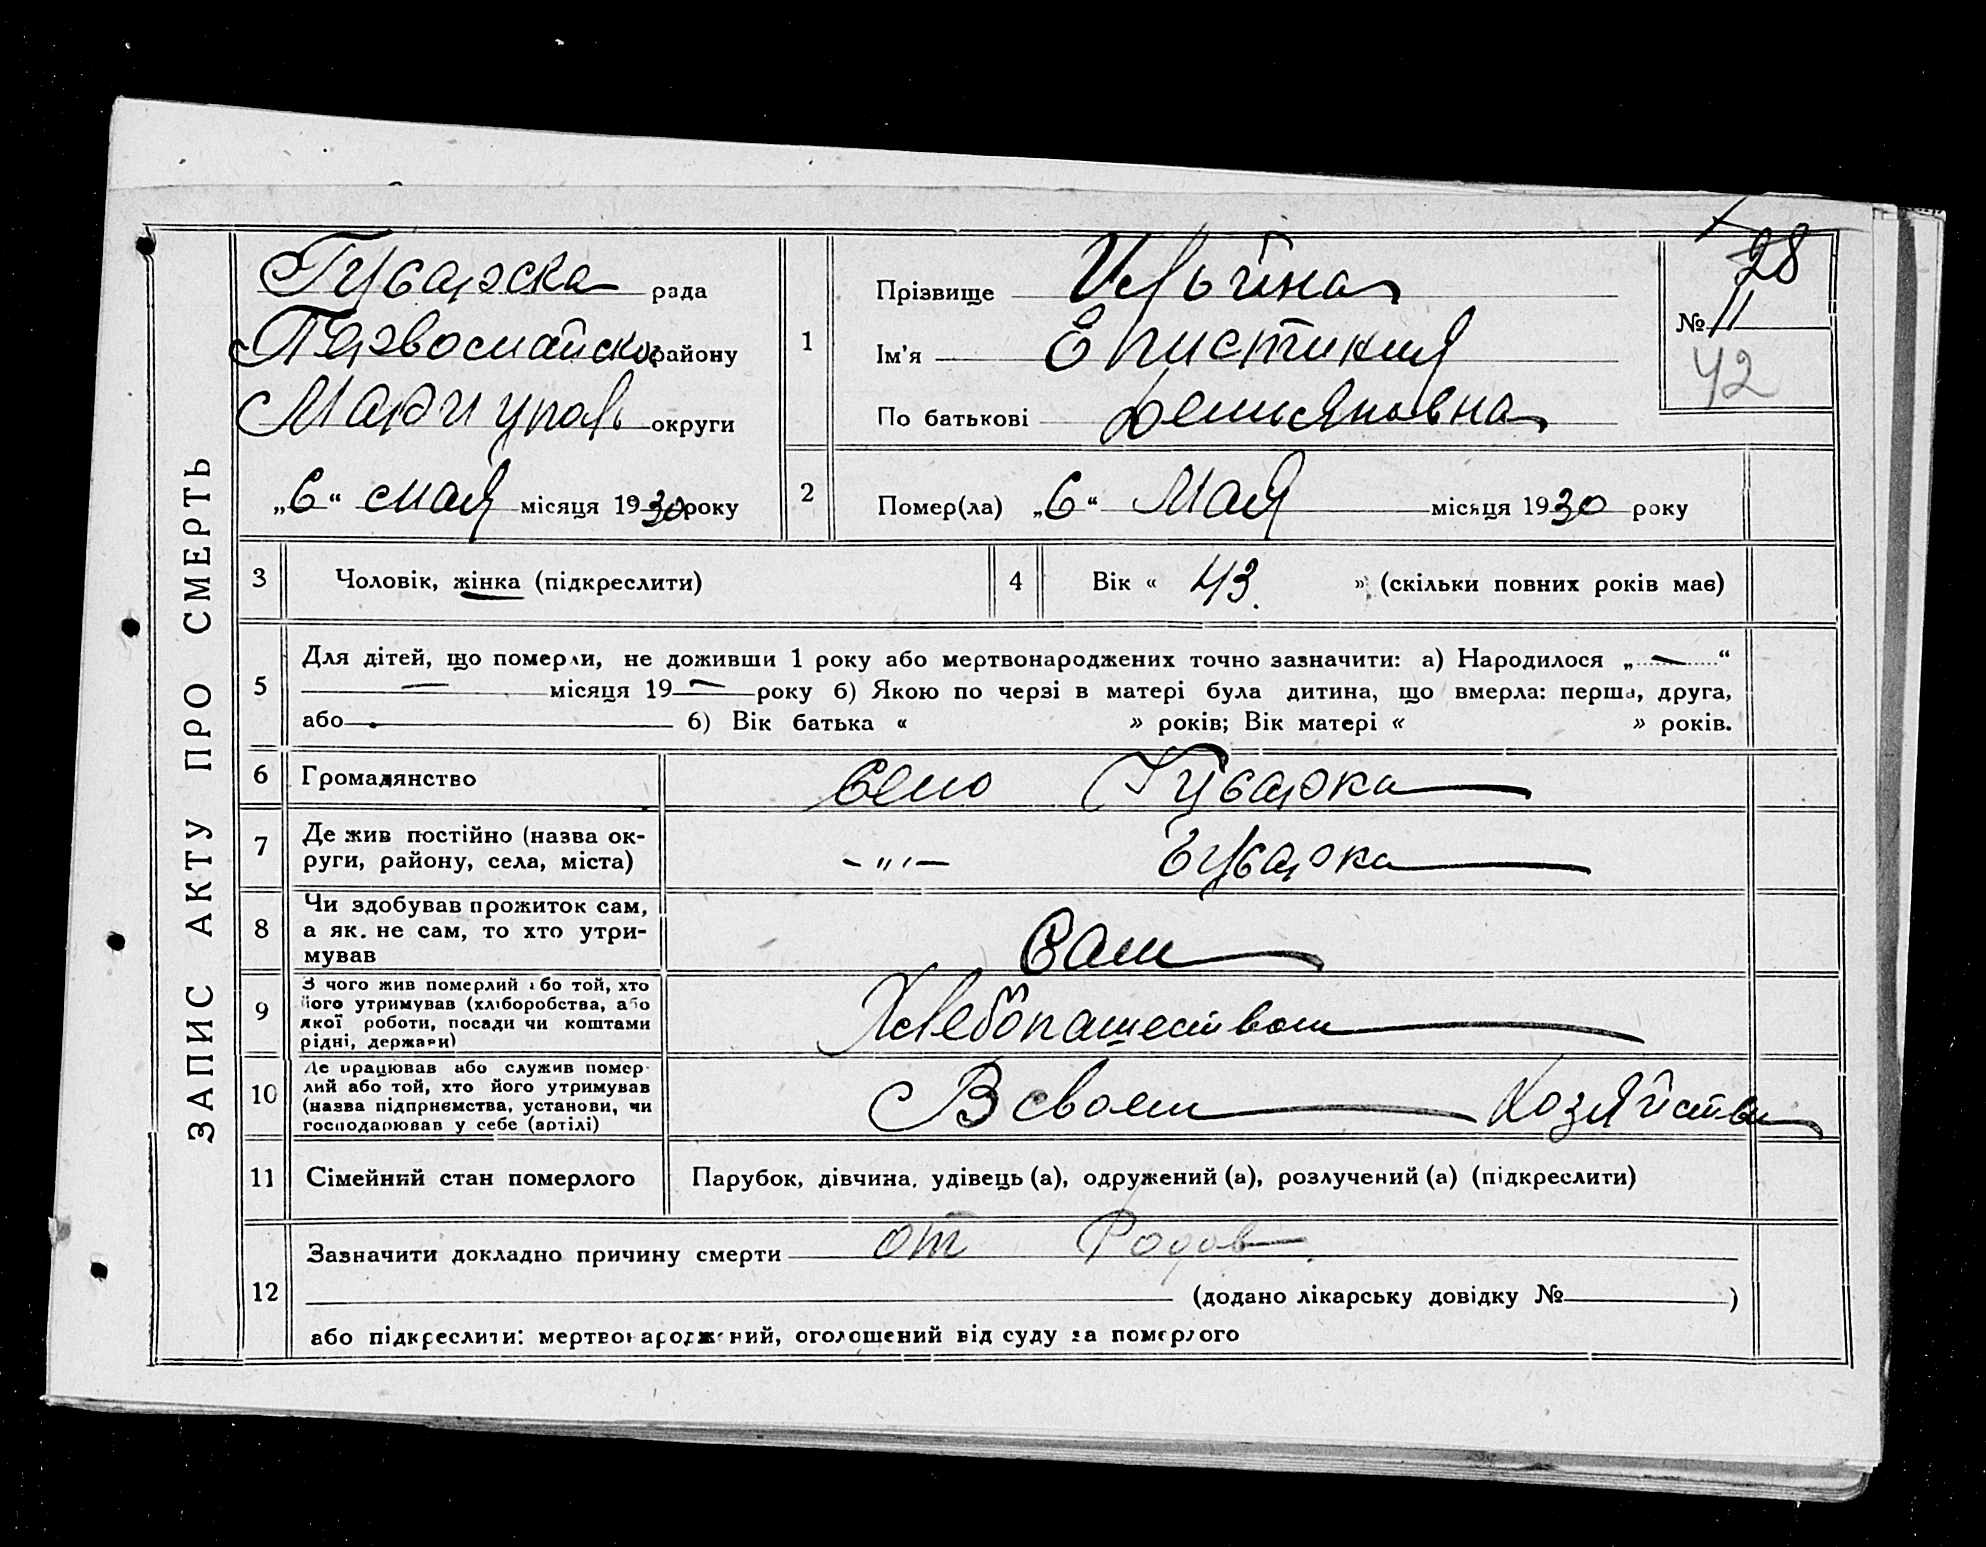 ЗАПИС АКТУ ПРО СМЕРТЬ
Гусарска рада
Первомайск району
Мариуполь округи
„6“ мая місяця 1930 року
1
Прізвище Ильина
Ім'я Епистиния
По батькові Демьяновна
28
№ 11
42
2
Помер(ла) „6“ Мая місяця 1930 року
3 Чоловік, жінка (підкреслити)
4 Вік « 43 » (скільки повних років має)
5
Для дітей, що померли, не доживши 1 року або мертвонароджених точно зазначити: а) Народилося „ — “
— місяця 19 — року б) Якою по черзі в матері була дитина, що вмерла: перша, друга,
або б) Вік батька « » років; Вік матері « » років.
6 Громадянство Село Гусарка
7 Де жив постійно (назва ок-
руги, району, села, міста) -"- Гусарка
8 Чи здобував прожиток сам,
а як. не сам, то хто утри-
мував Сам
9 З чого жив померлий або той, хто
його утримував (хліборобства, або
якої роботи, посади чи коштами
рідні, держави) Хлебопашеством
10 Де працював або служив помер-
лий або той, хто його утримував
(назва підприємства, установи, чи
господарював у себе (артілі) В своем Хозяйстве
11 Сімейний стан померлого Парубок, дівчина, удівець (а), одружений (а), розлучений (а) (підкреслити)
12
Зазначити докладно причину смерти от Родов
(додано лікарську довідку № )
або підкреслити: мертвонароджений, оголошений від суду за померлого